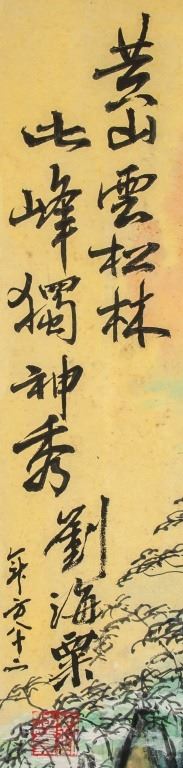 黄山雲松林
此峰獨神秀
劉海粟
年方八十二